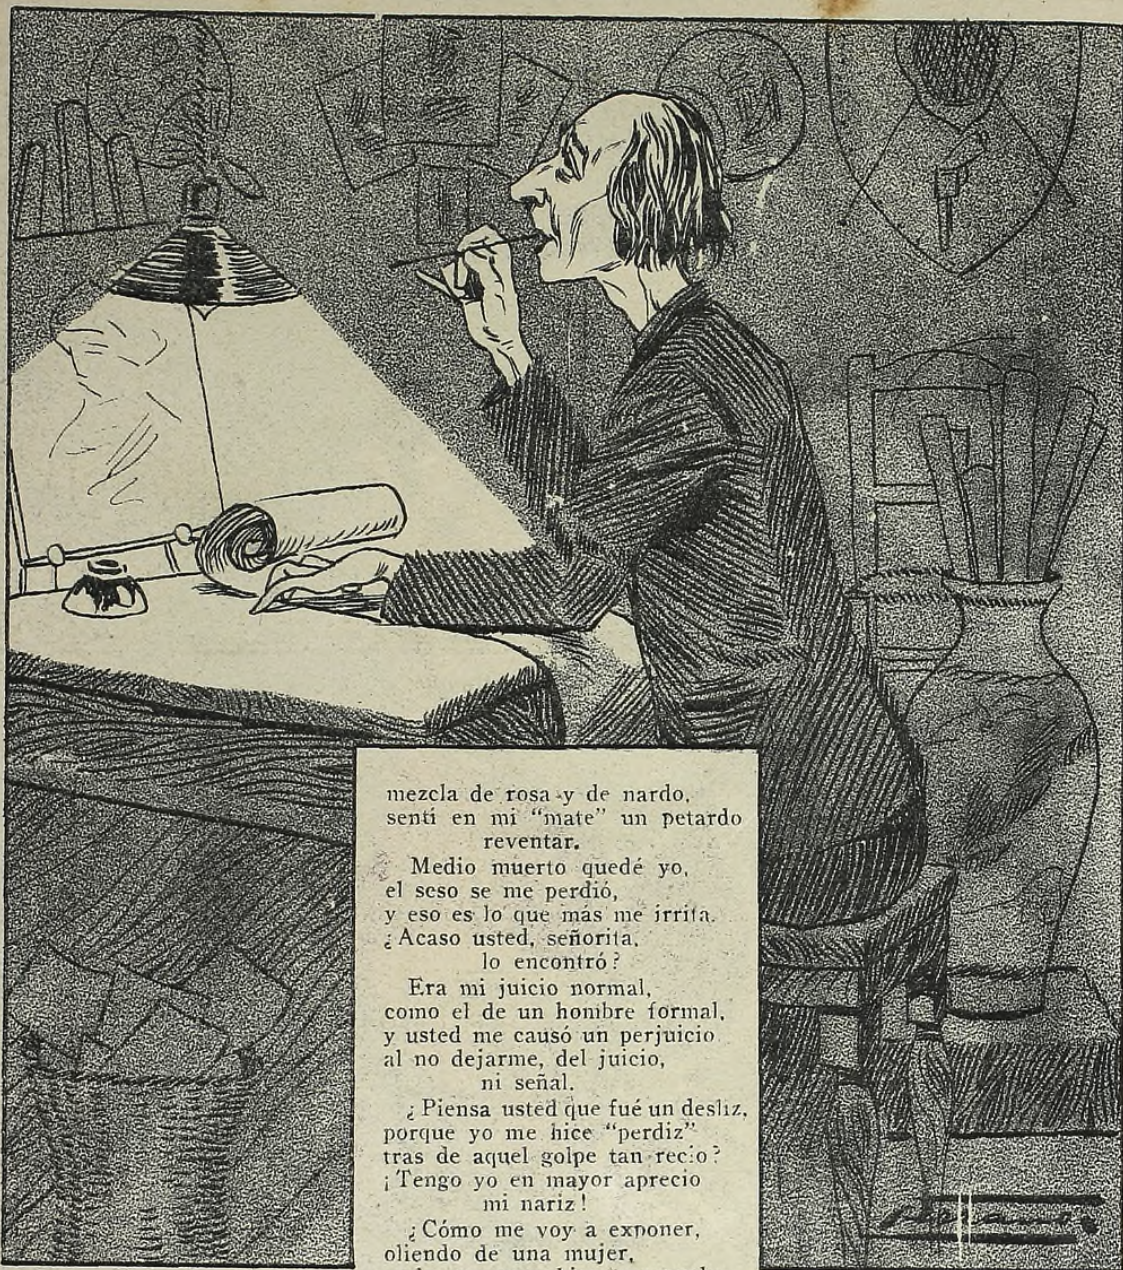 mezcla de rosa y de nardo,
sentí en mi “mate” un petardo
reventar.
Medio muerto quedé yo,
el seso se me perdió,
y eso es lo que más me irrita.
¿Acaso usted, señorita,
lo encontró?
Era mi juicio normal,
como el de un hombre formal,
y usted me causó un perjuicio
al no dejarme, del juicio,
ni señal.
¿Piensa usted que fué un desliz,
porque yo me hice “perdiz”
tras de aquel golpe tan recio?
¡Tengo yo en mayor aprecio
mi nariz!
¿Cómo me voy a exponer,
oliendo de una mujer,